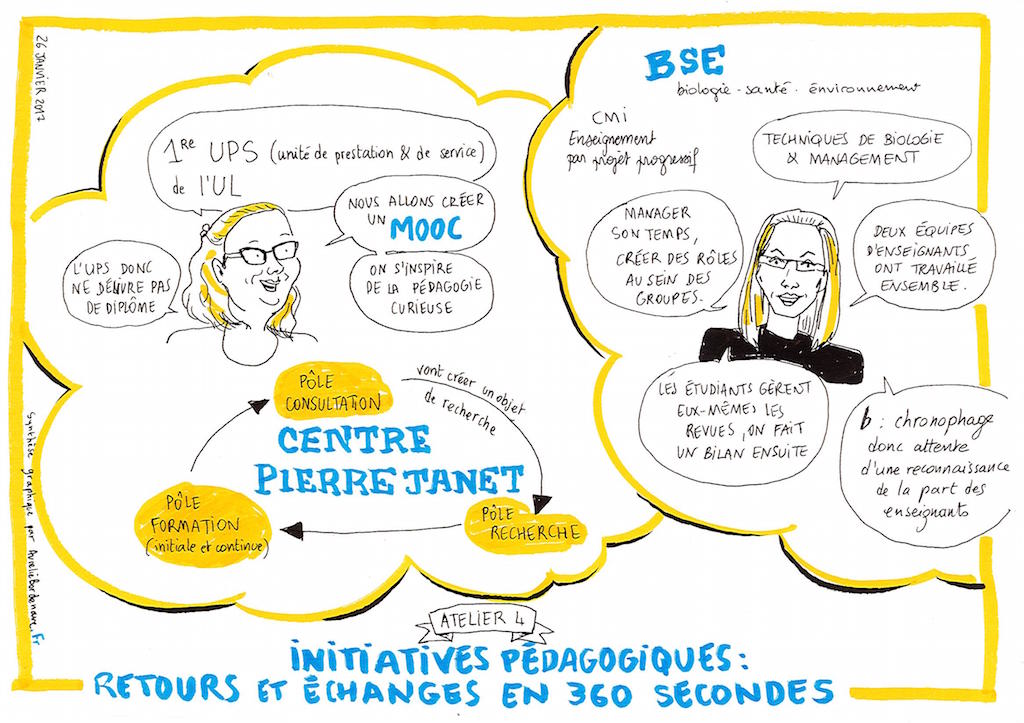 26 JANVIER 2017
1RE UPS (unité de prestation & de service)
de l'UL
NOUS ALLONS CRÉER
UN MOOC
L'UPS DONC
NE DÉLIVRE PAS
DE DIPLÔME
ON S'INSPIRE
DE LA PÉDAGOGIE
CURIEUSE
PÔLE
CONSULTATION
vont créer un objet
de recherche
CENTRE
PIERRE JANET
PÔLE
FORMATION
(initiale et continue)
PÔLE
RECHERCHE
BSE
biologie - santé - environnement
CMI
Enseignement
par projet progressif
TECHNIQUES DE BIOLOGIE
& MANAGEMENT
MANAGER
SON TEMPS,
CRÉER DES RÔLES
AU SEIN DES
GROUPES.
DEUX ÉQUIPES
D'ENSEIGNANTS
ONT TRAVAILLÉ
ENSEMBLE.
LES ÉTUDIANTS GÈRENT
EUX-MÊMES LES
REVUES, ON FAIT
UN BILAN ENSUITE
b : chronophage
donc attente
d'une reconnaissance
de la part des
enseignants
synthèse graphique par AurelieBordenave.Fr
ATELIER 4
INITIATIVES PÉDAGOGIQUES :
RETOURS ET ÉCHANGES EN 360 SECONDES